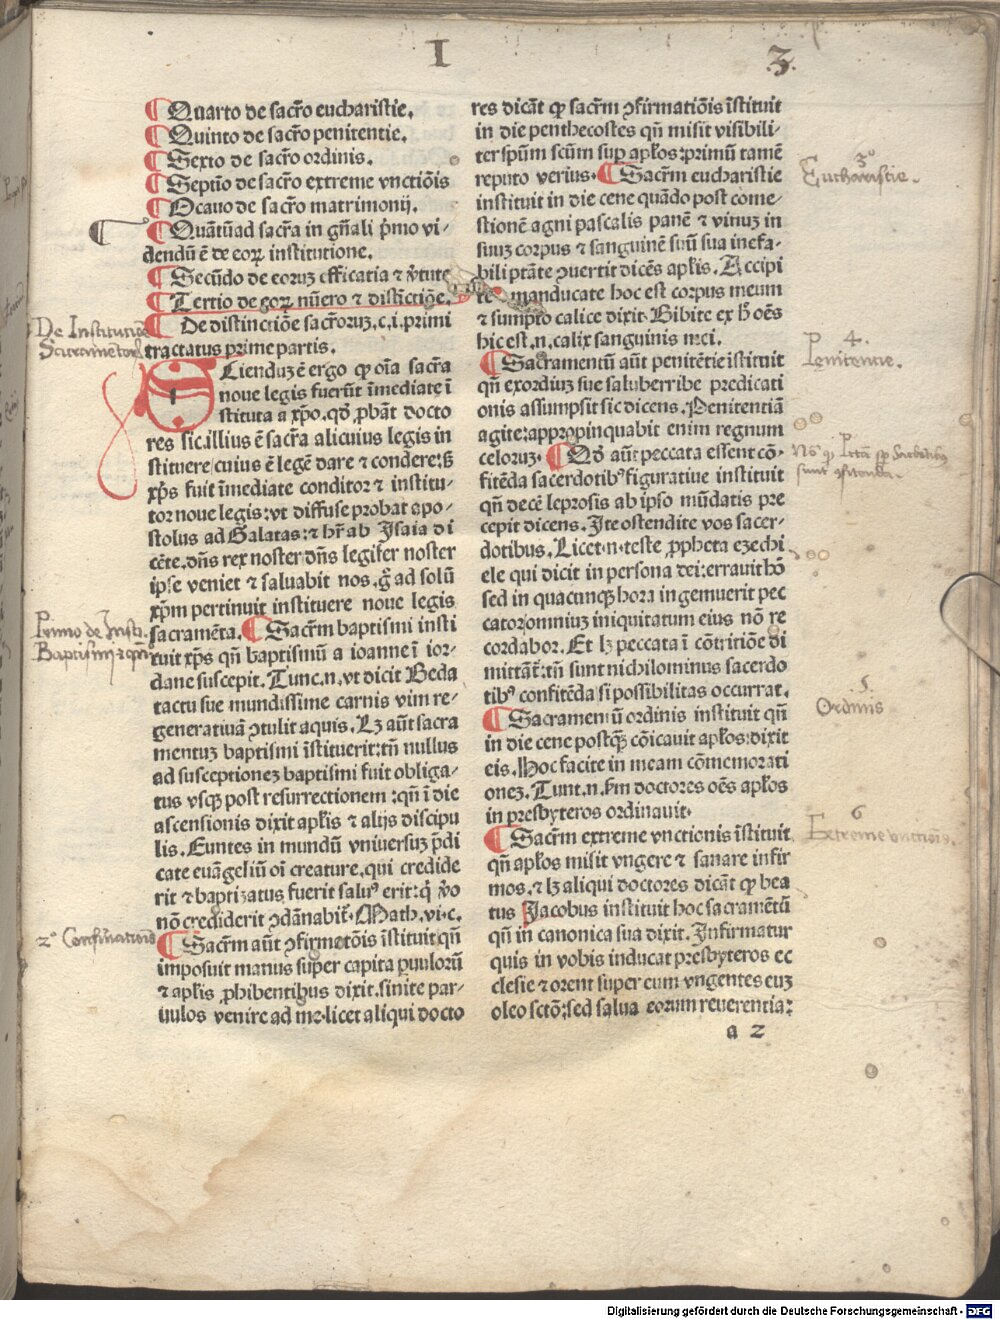 I
3.
¶ Quarto de sacr̄o eucharistie.
¶ Quinto de sacr̄o penitentie.
¶ Sexto de sacr̄o ordinis.
¶ Septīo de sacr̄o extreme vnctiōis
¶ Octauo de sacr̄o matrimonij.
¶ Quātū ad sacr̄a in gn̄ali p̄mo vi⸗
dendū ē de eoꝝ institutione.
¶ Secūdo de eoruꝫ efficatia ⁊ v̄tute
¶ Tertio de eoꝝ nūero ⁊ distīctiōe.
¶ De distinctiōe sacr̄oruꝫ.c.i.primi
tractatus prime partis.
De Institutiōe
Sacramētorū
SCienduꝫ ē ergo ꝙ oīa sacr̄a
noue legis fuerūt īmediate ī
stituta a xp̄o. qd̓ ꝓbāt docto
res sic. illius ē sacr̄a alicuius legis in
stituere / cuius ē legē dare ⁊ condere: sꝫ
xp̄s fuit īmediate conditor ⁊ institu⸗
tor noue legis: vt diffuse probat apo⸗
stolus ad Galatas: ⁊ hr̄ ab Isaia di
cēte. dn̄s rex noster dn̄s legifer noster
ipse veniet ⁊ saluabit nos. g̊ ad solū
xp̄m pertinuit instituere noue legis
sacramēta. ¶ Sacr̄m baptismi insti
Primo de Insti.
Baptismi ⁊ qn̄
tuit xp̄s qn̄ baptismū a ioanne ī ior⸗
dane suscepit. Tunc.n. vt dicit Beda
tactu sue mundissime carnis vim re⸗
generatiuā ꝯtulit aquis. Lꝫ aūt sacra
mentuꝫ baptismi īstituerit: tn̄ nullus
ad susceptioneꝫ baptismi fuit obliga⸗
tus vsqꝫ post resurrectionem: qn̄ ī die
ascensionis dixit apl̄is ⁊ alijs discipu
lis. Euntes in mundū vniuersuꝫ p̄di
cate euāgeliū oī creature. qui credide
rit ⁊ baptizatus fuerit saluꝰ erit: q̇ v̄o
nō crediderit ꝯdānabit̄. Math. vi.c.
2° Confirmationis
¶ Sacr̄m aūt ꝯfirmatōis īstituit qn̄
imposuit manus super capita puuloꝝ
⁊ apl̄is ꝓhibentibus dixit. sinite par⸗
uulos venire ad me. licet aliqui docto
res dicāt ꝙ sacr̄m ꝯfirmatiōis īstituit
in die penthecostes qn̄ misit visibili⸗
ter spūm scūm sup apl̄os: primū tamē
reputo verius. ¶ Sacr̄m eucharistie
3°
Eucharistie.
instituit in die cene quādo post come⸗
stionē agni pascalis panē ⁊ vinuꝫ in
suuꝫ corpus ⁊ sanguinē suū sua inefa⸗
bili ptāte ꝯuertit dicēs apl̄is. Accipi
te manducate hoc est corpus meum
⁊ sumpto calice dixit. Bibite ex h̊ oēs
hic est.n. calix sanguinis mei.
¶ Sacramentū aūt penitētie īstituit
4.
Penitentie.
qn̄ exordiuꝫ sue saluberribe predicati
onis assumpsit sic dicens. Penitentiā
agite: appropinquabit enim regnum
celoruꝫ. ¶ Qd̓ aūt peccata essent cō⸗
fitēda sacerdotibꝰ figuratiue instituit
qn̄ decē leprosis ab ipso mūdatis pre
cepit dicens. Ite ostendite vos sacer⸗
dotibus. Licet.n. teste ꝓpheta ezechi
ele qui dicit in persona dei: errauit hō
sed in quacunqꝫ hora ingemuerit pec
cator / omnium iniquitatum eius nō re
cordabor. Et lꝫ peccata ī cōtritiōe di
mittāt̄: tn̄ sunt nichilominus sacerdo
tibꝰ confitēda si possibilitas occurrat.
¶ Sacramentū ordinis instituit qn̄
5.
Ordinis
in die cene postqꝫ cōicauit apl̄os: dixit
eis. Hoc facite in meam cōmemorati
oneꝫ. Tunt.n. s̄m doctores oēs apl̄os
in presbyteros ordinauit.
¶ Sacr̄m extreme vnctionis īstituit
6
Extreme vnctiōis.
qn̄ apl̄os misit vngere ⁊ sanare infir
mos. ⁊ lꝫ aliqui doctores dicāt ꝙ bea
tus Jacobus instituit hoc sacramētū
qn̄ in canonica sua dixit. Infirmatur
quis in vobis inducat presbyteros ec
clesie ⁊ orent super eum vngentes euꝫ
oleo sctō: sed salua eorum reuerentia:
a 2
Digitalisierung gefördert durch die Deutsche Forschungsgemeinschaft - DFG